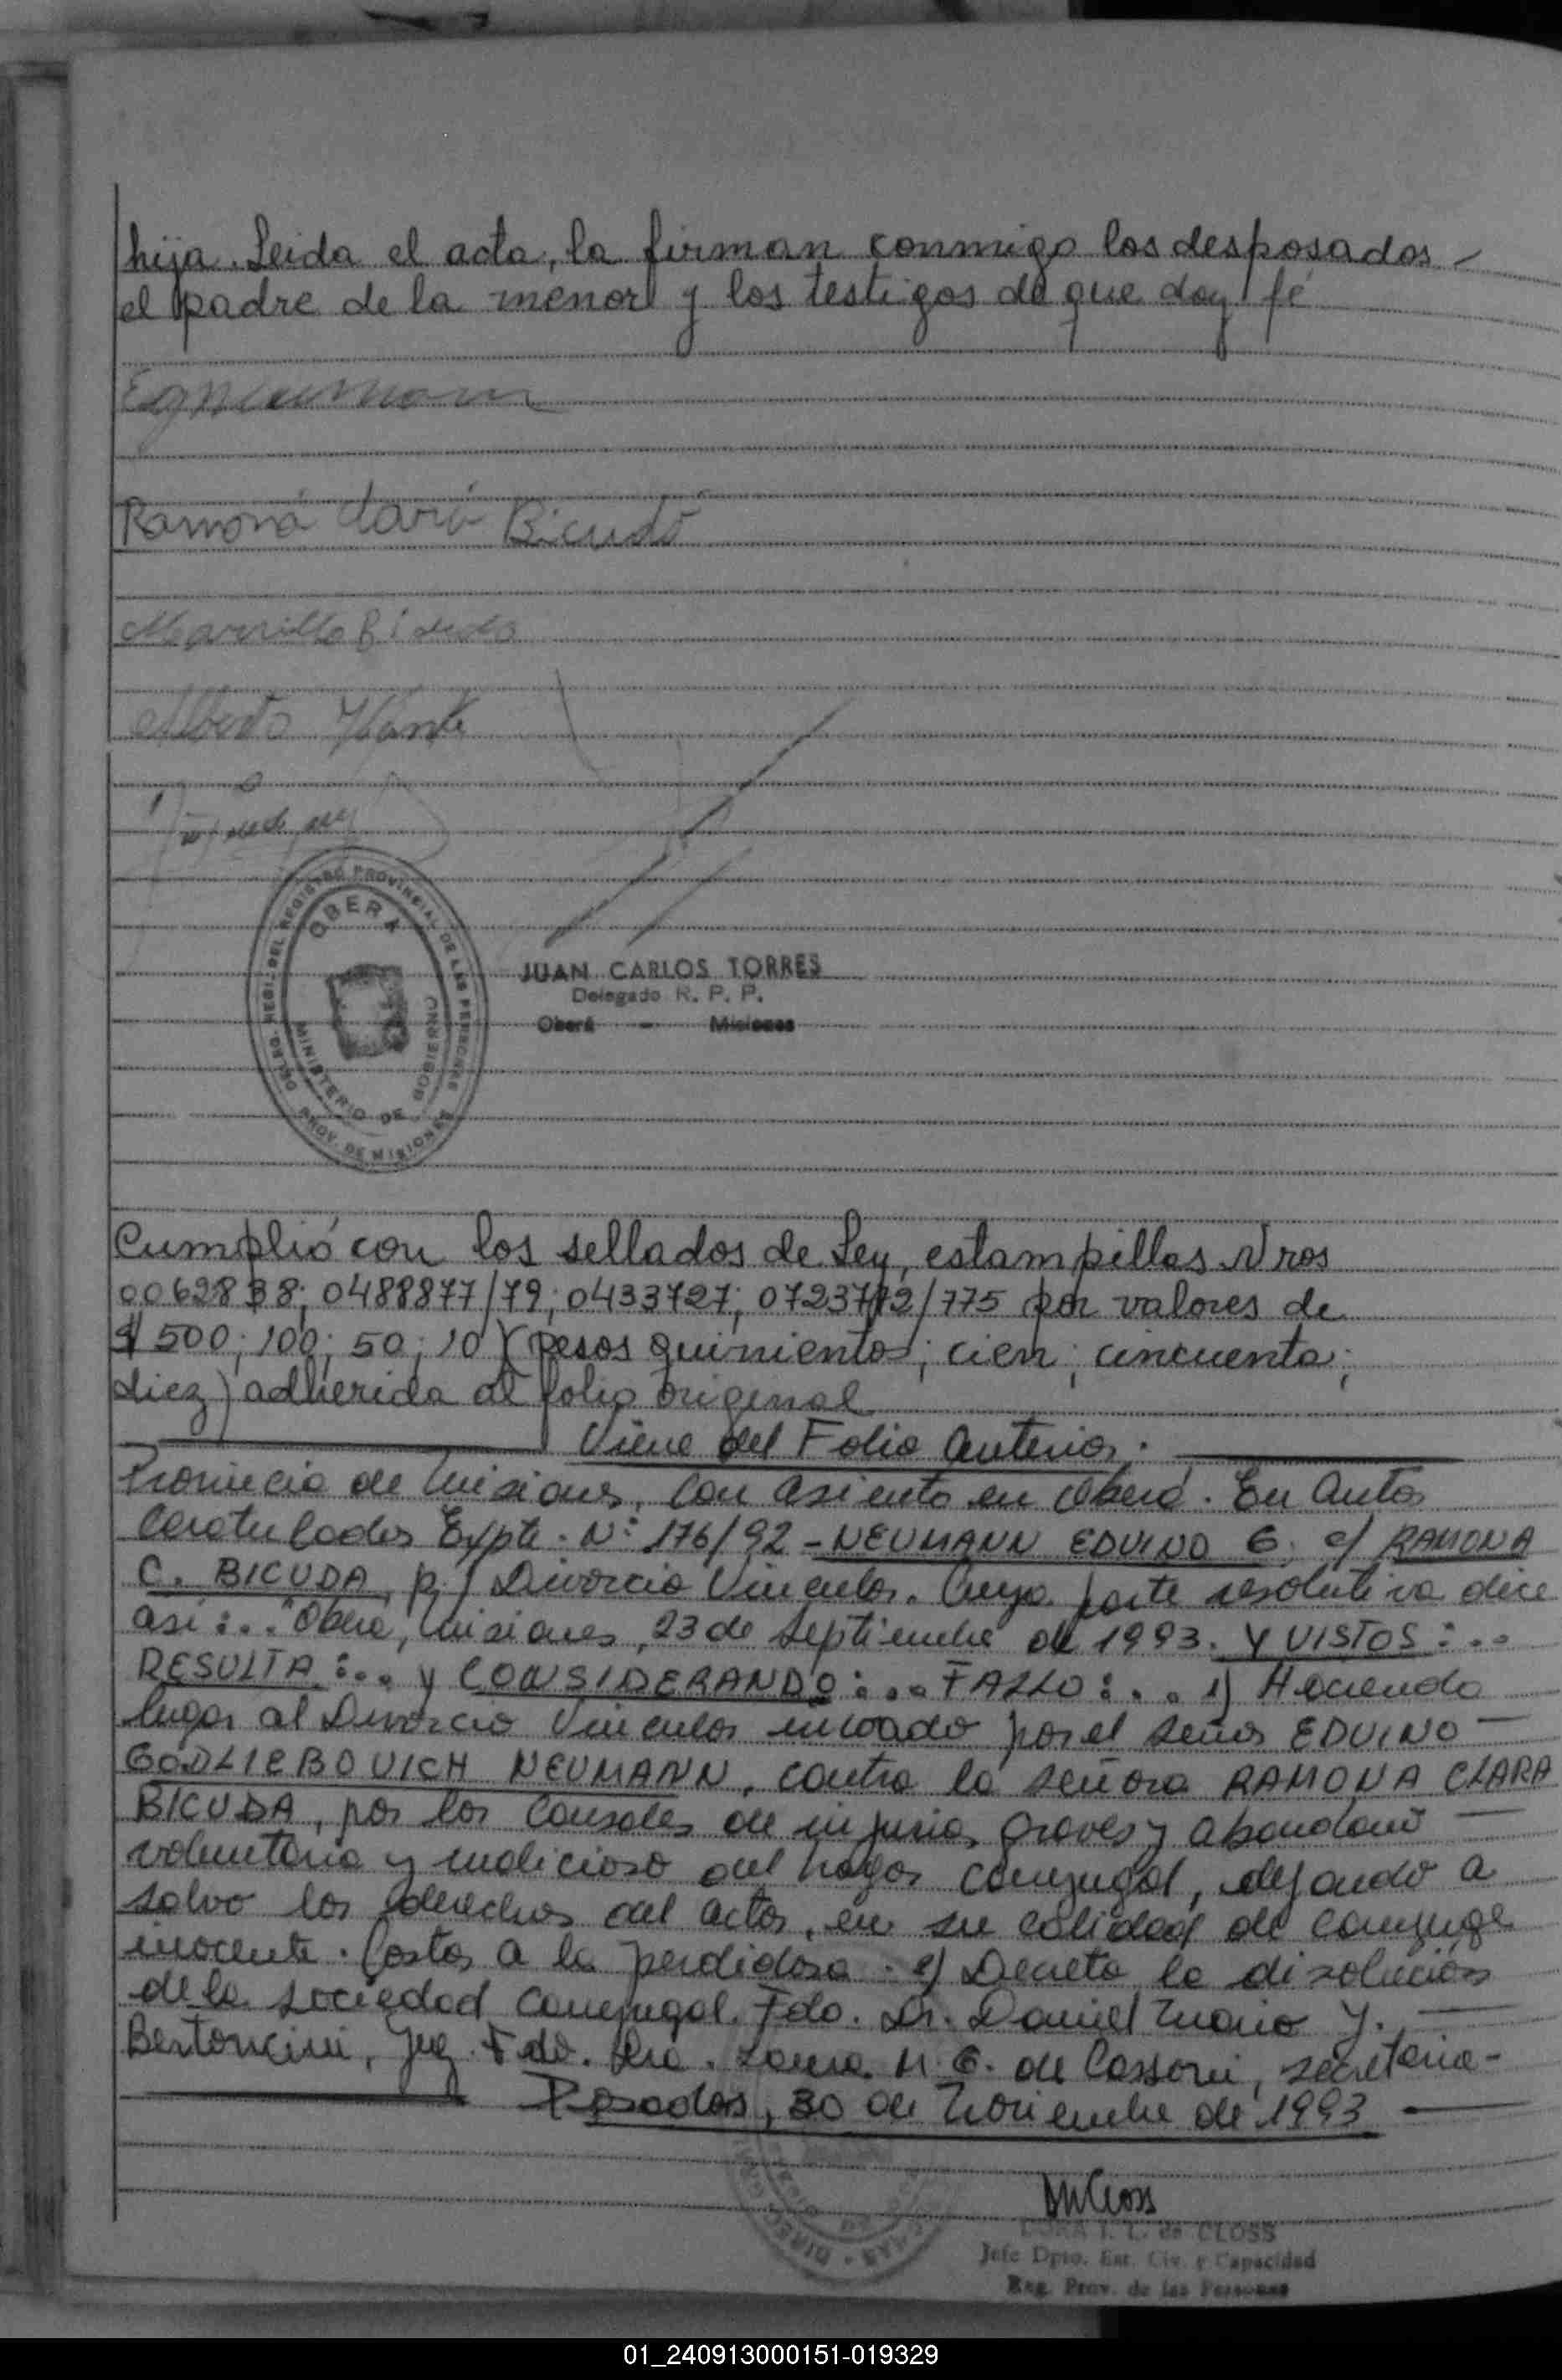 hija. Leida el acta, la firman conmigo los desposados -
el padre de la menor y los testigos de que doy fé
Egneumann
Ramona Clara Bicudo
Marcillo Bicudo
Alberto
DELEG. REGI. DEL REGISTRO PROVINCIAL DE LAS PERSONAS
OBERA
MINISTERIO DE GOBIERNO
PROV. DE MISIONES
JUAN CARLOS TORRES
Delegado R. P. P.
Oberá - Misiones
Cumplió con los sellados de Ley, estampillas Nros
0062838; 0488877/79; 0433727; 0723772/775 por valores de
$ 500; 100; 50; 10 (pesos quinientos; cien; cincuenta;
diez) adherida al folio original
Viene del Folio Anterior.
Provincia de Misiones, con asiento en Oberá. En Autos
Caratulados Expte. Nº 176/92 - NEUMANN EDUINO G. c/ RAMONA
C. BICUDA, p./ Divorcio Vincular. Cuya parte resolutiva dice
asi:... "Oberá, Misiones, 23 de Septiembre de 1993. Y VISTOS:...
RESULTA:... y CONSIDERANDO:... FALLO:... 1) Haciendo
lugar al Divorcio Vincular incoado por el señor EDUINO -
GODLIEBOVICH NEUMANN, contra la señora RAMONA CLARA
BICUDA, por las Causales de injurias graves y abandono -
voluntario y malicioso del hogar conyugal, dejando a
salvo los derechos del actor, en su calidad de conyuge
inocente. Costas a la perdidosa. 2) Decreta la disolución
de la sociedad conyugal. Fdo. Dr. Daniel Mario Y. -
Bertoncini, Juez. Fdo. Dra. Laura M. G. de Cassoni, secretaria -
Posadas, 30 de Noviembre de 1993
DORA I. L. de CLOSS
Jefe Dpto. Est. Civ. y Capacidad
Reg. Prov. de las Personas
01_240913000151-019329